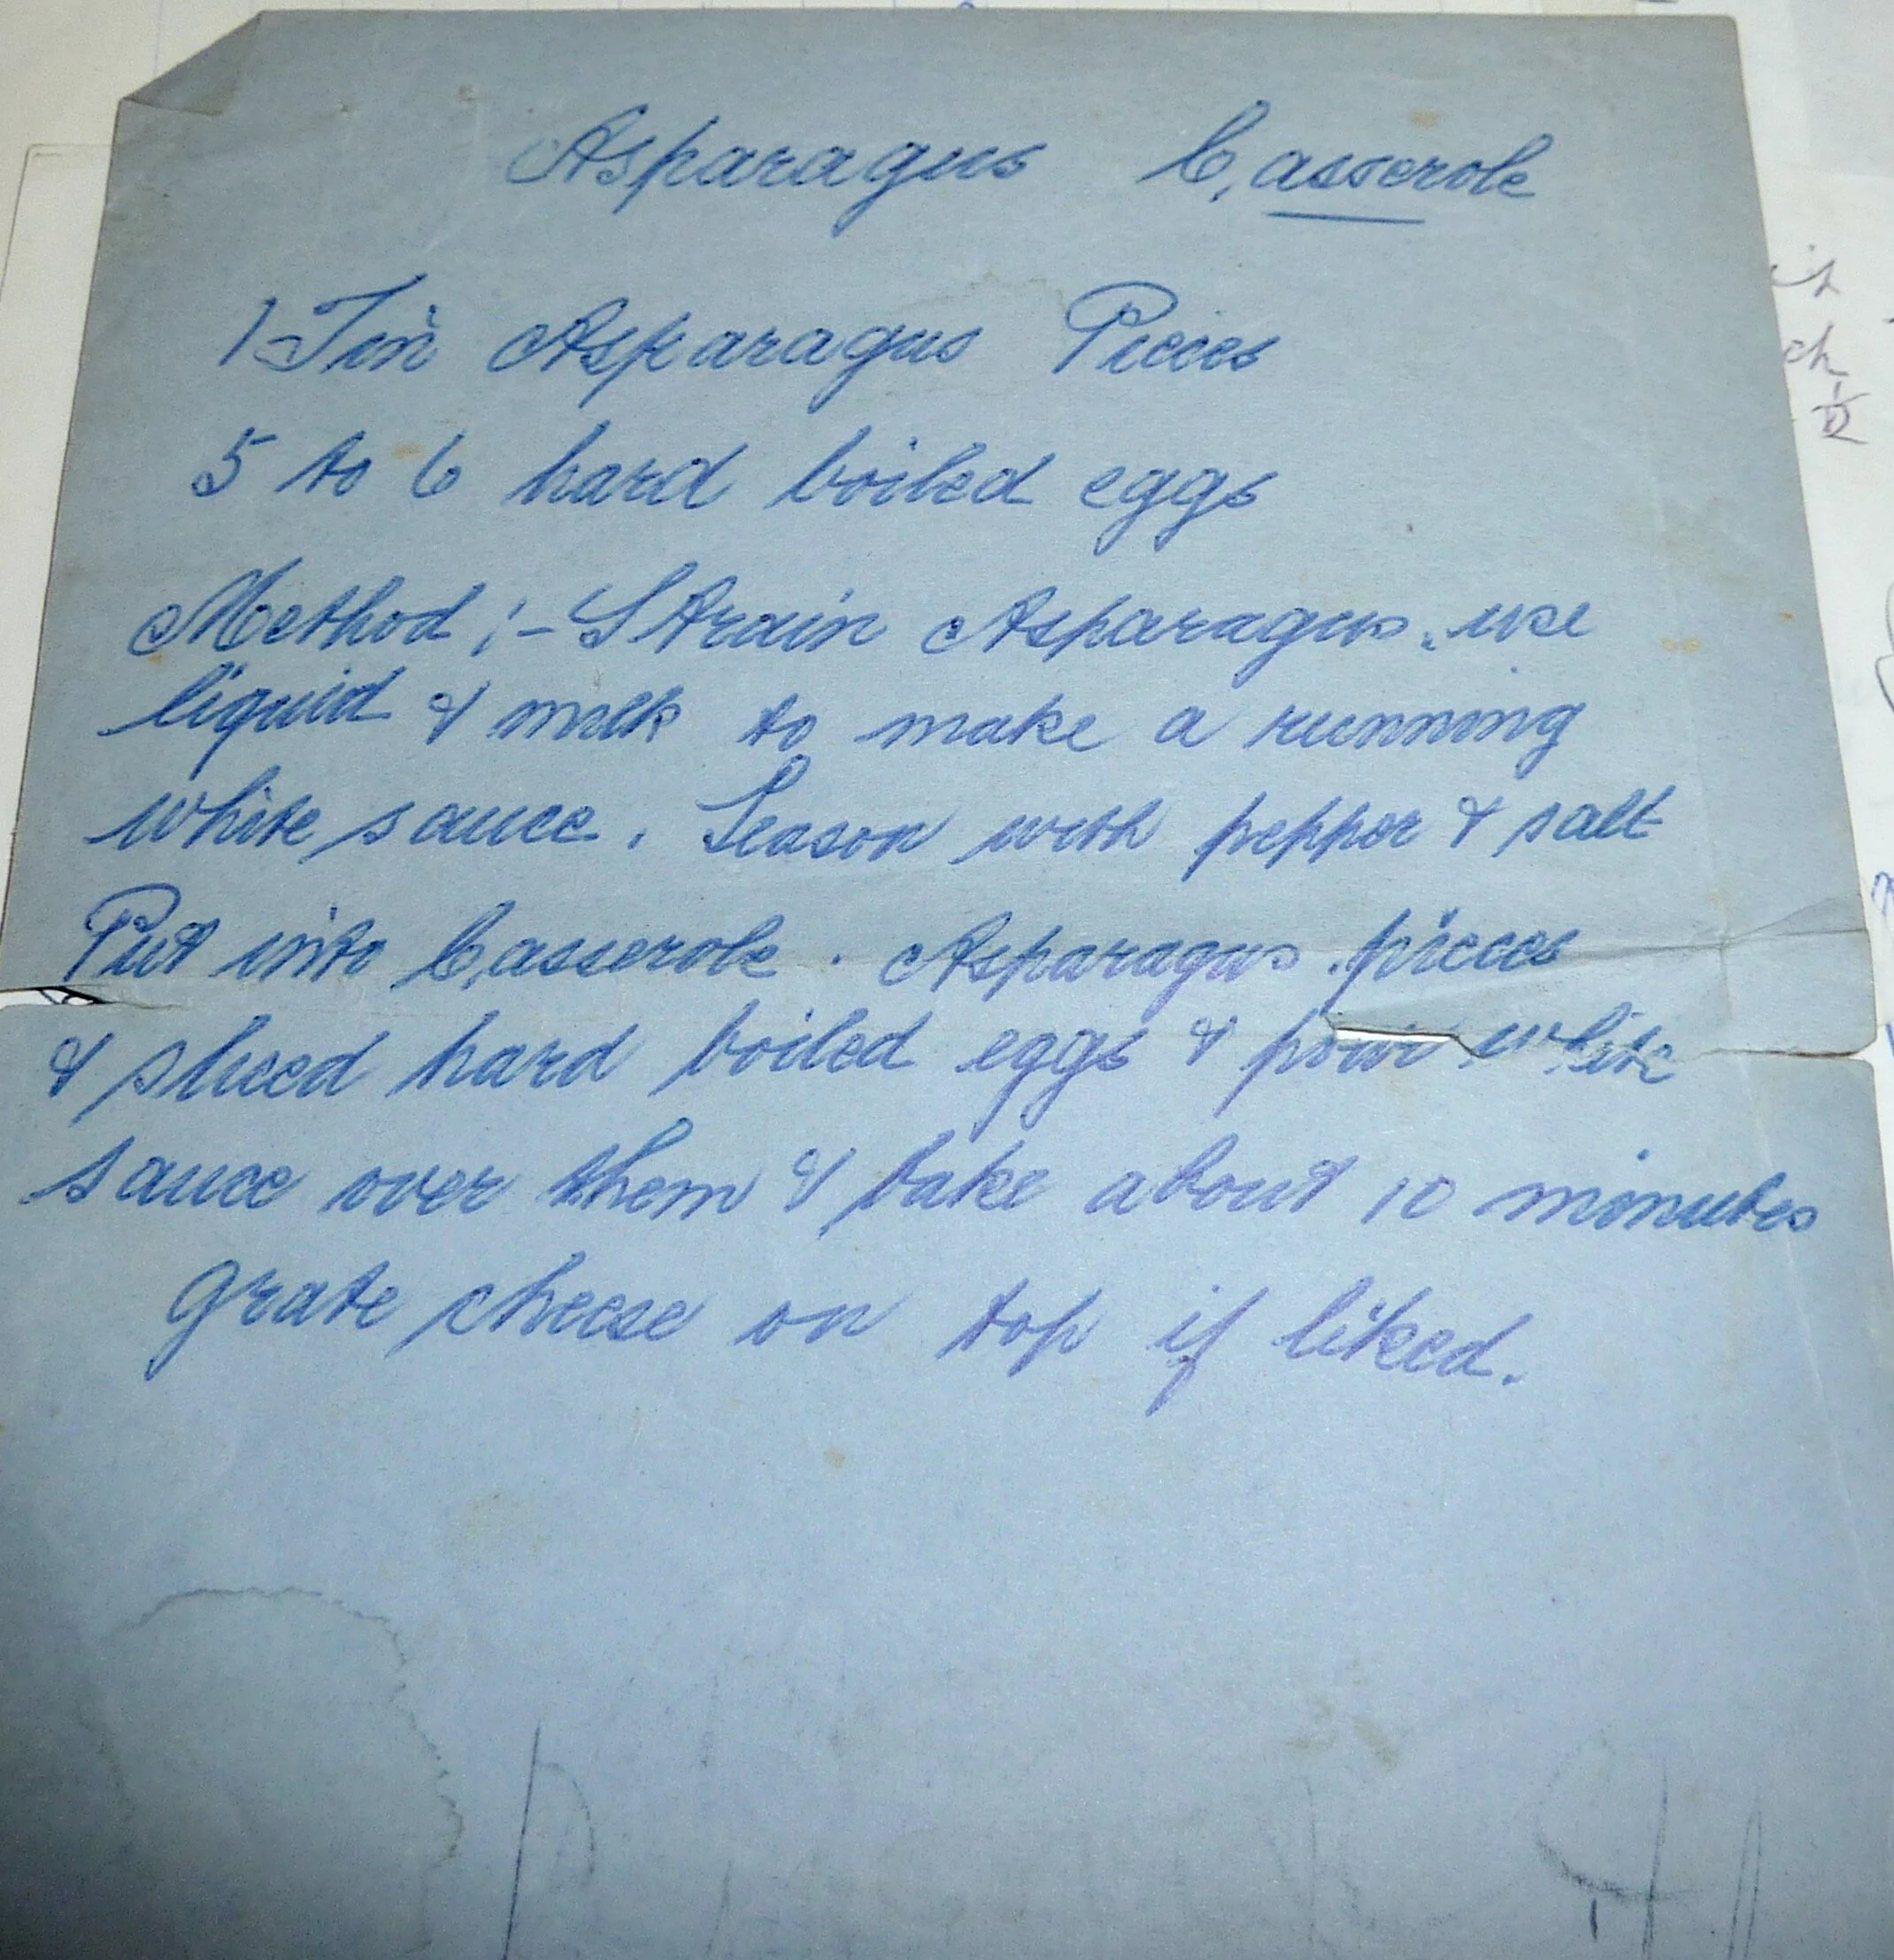 Asparagus Casserole
1 Tin Asparagus Pieces
5 to 6 hard boiled eggs
Method :- Strain Asparagus. use
liquid & milk to make a running
white sauce. Season with pepper & salt
Put into Casserole. Asparagus pieces
& sliced hard boiled eggs & pour white
sauce over them & bake about 10 minutes
grate cheese on top if liked.